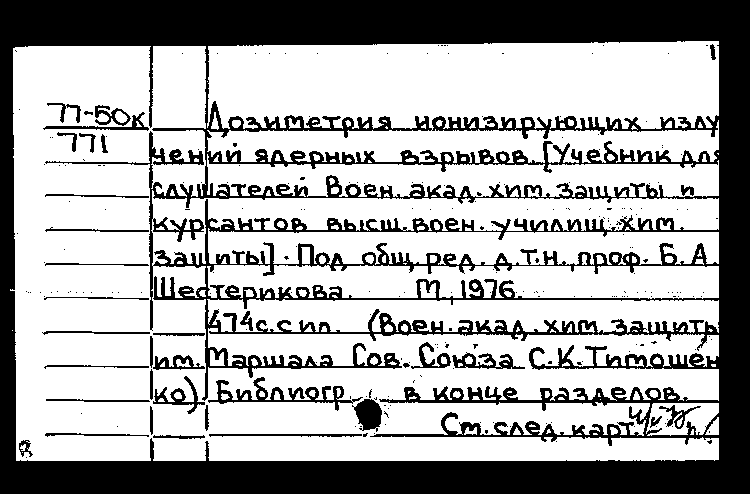 77-50к
771
Дозиметрия ионизирующих излу
чений ядерных взрывов. [Учебник для
слушателей Воен. акад. хим. защиты и
курсантов высш. воен. училищ хим.
защиты]. Под общ. ред. д.т.н., проф. Б. А.
Шестерикова. М., 1976.
474с. с ил. (Воен. акад. хим. защиты
им. Маршала Сов. Союза С.К. Тимошен
ко). Библиогр в конце разделов.
См. след. карт.